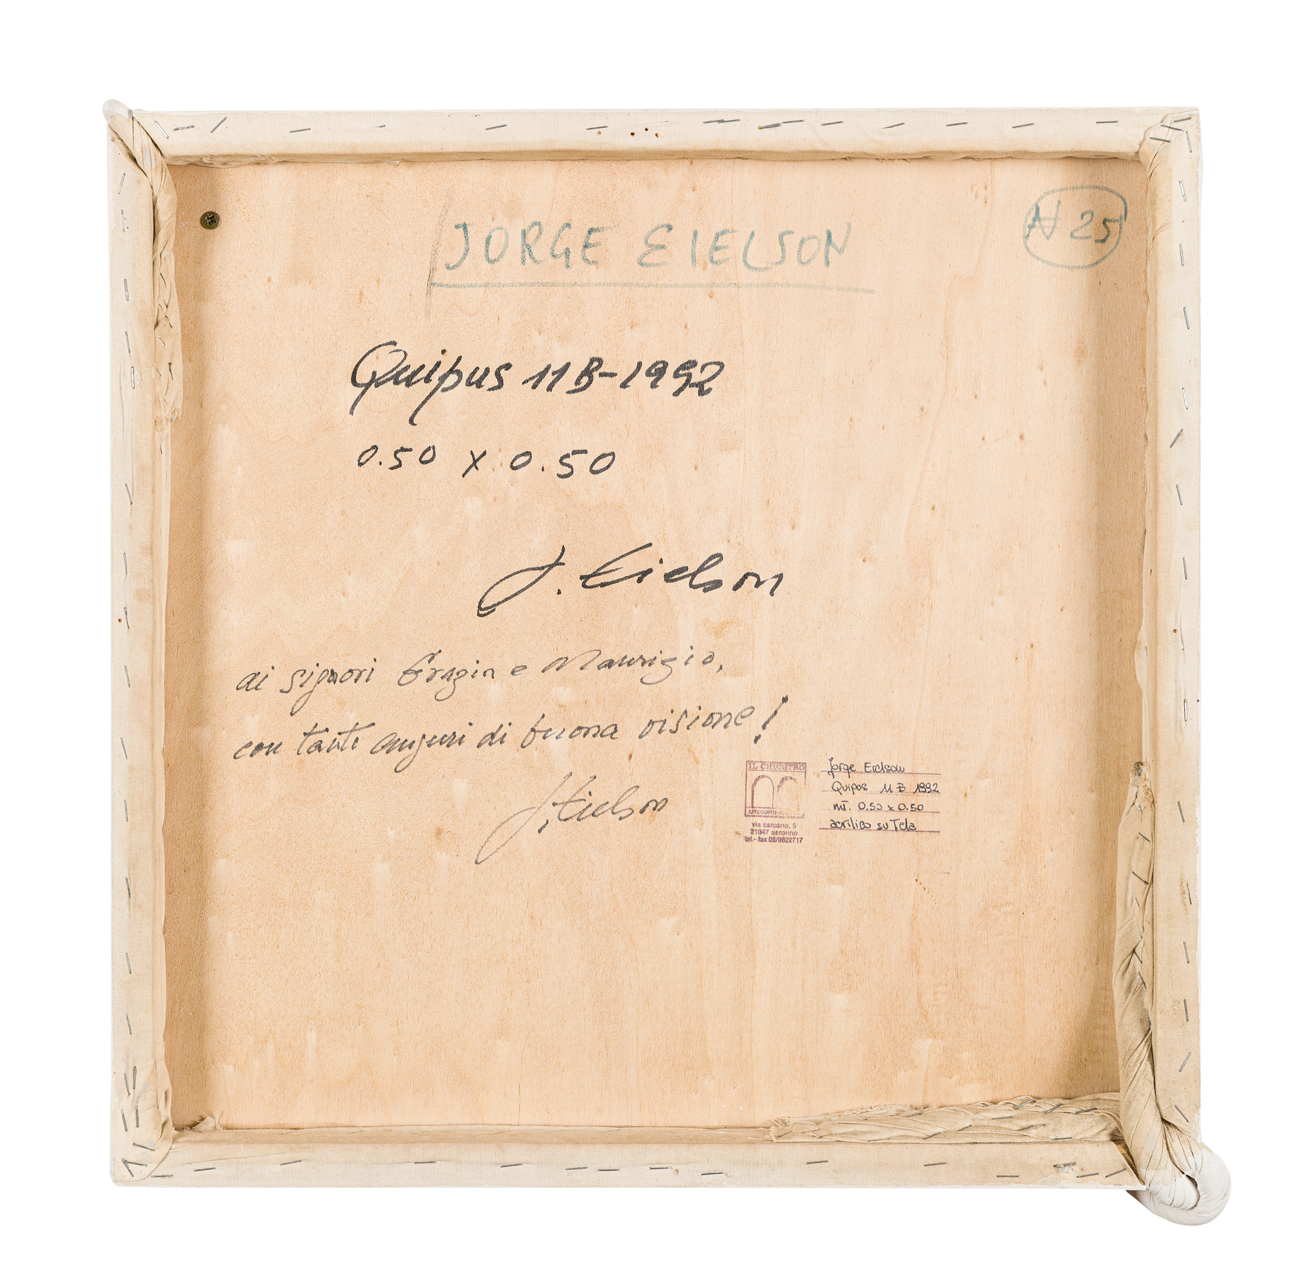 JORGE EIELSON
N 25
Quipus 11B-1992
0.50 x 0.50
J. Eielson
ai signori e Maurizio,
con tanti auguri di buona visione!
J. Eielson
IL CHIOSTRO
via carcano, 5
21047 saronno
tel.- fax 02/9622717
Jorge Eielson
Quipus 11 B 1992
mt. 0.50 x 0.50
acrilico su Tela